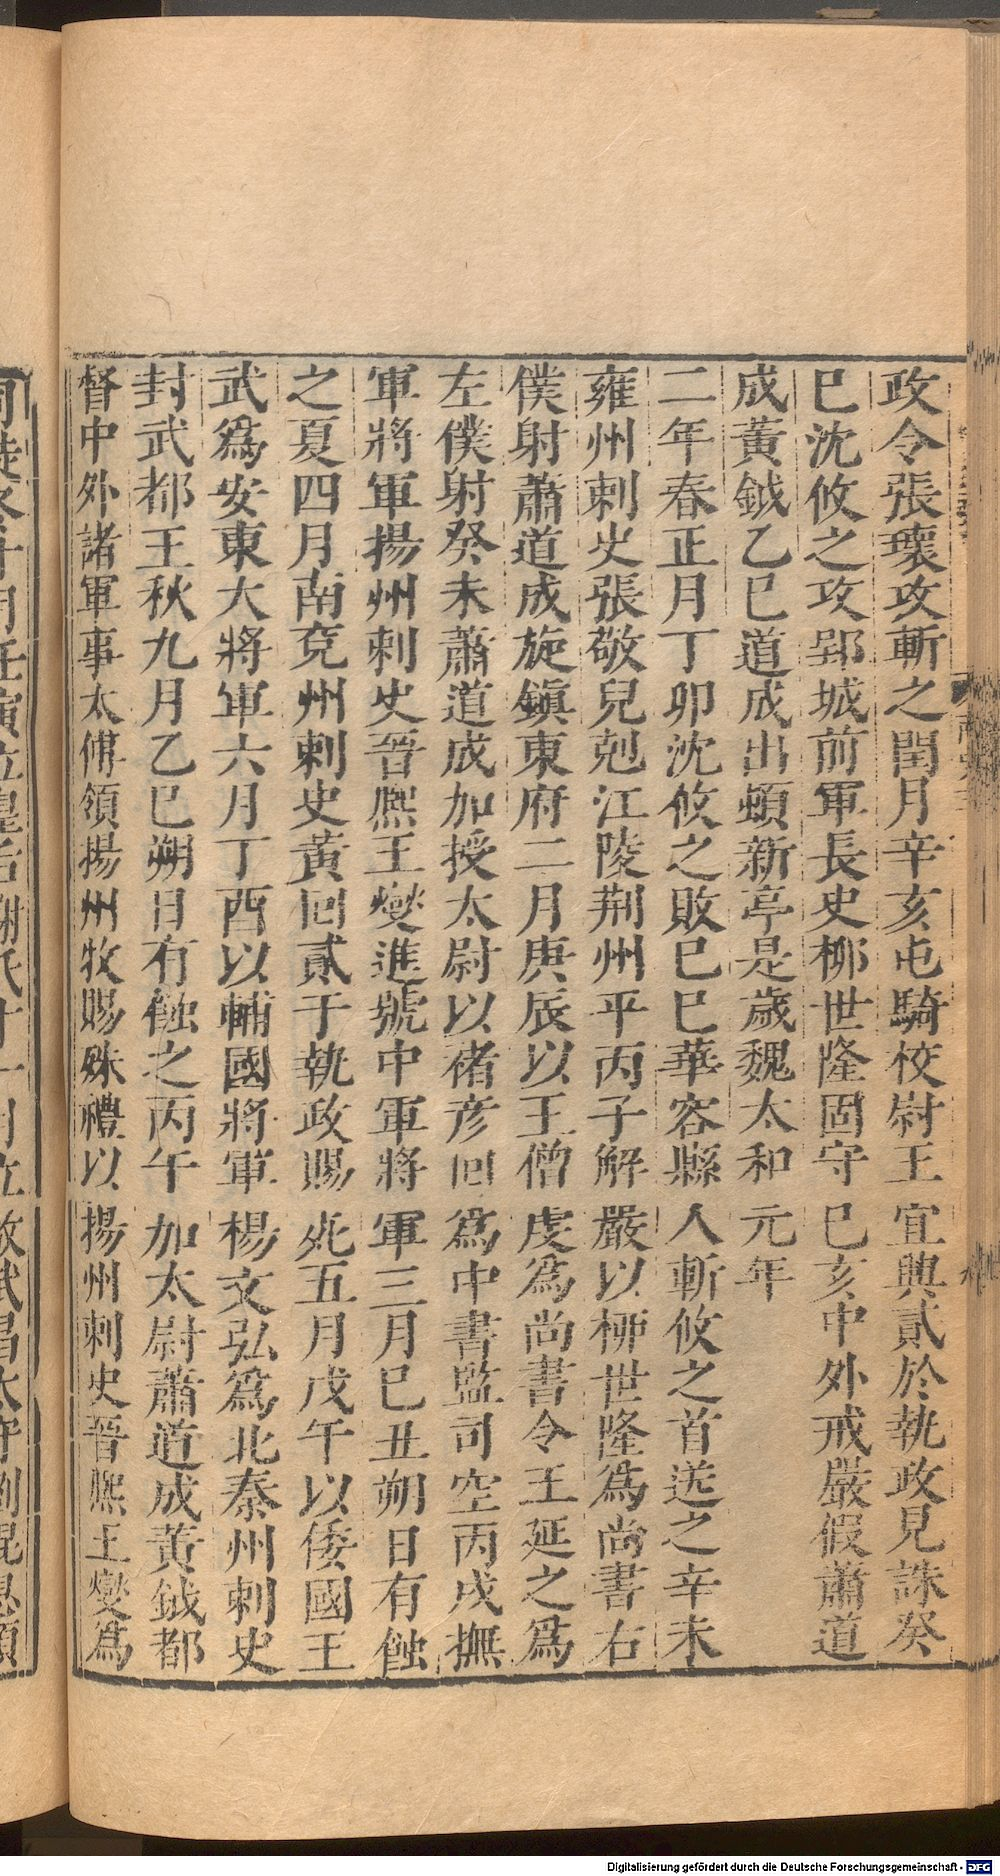 政令張瓌攻斬之閏月辛亥屯騎校尉王宜興貳於執政見誅癸
巳沈攸之攻郢城前軍長史柳世隆固守己亥中外戒嚴假蕭道
成黃鉞乙巳道成出頓新亭是歲魏太和元年
二年春正月丁卯沈攸之敗己巳華容縣人斬攸之首送之辛未
雍州刺史張敬兒剋江陵荊州平丙子解嚴以柳世隆爲尚書右
僕射蕭道成旋鎭東府二月庚辰以王僧虔爲尚書令王延之爲
左僕射癸未蕭道成加授太尉以褚彦回爲中書監司空丙戌撫
軍將軍揚州刺史晉熙王燮進號中軍將軍三月己丑朔日有蝕
之夏四月南兗州刺史黃回貳于執政賜死五月戊午以倭國王
武爲安東大將軍六月丁酉以輔國將軍楊文弘爲北秦州刺史
封武都王秋九月乙巳朔日有蝕之丙午加太尉蕭道成黃鉞都
督中外諸軍事太傅領揚州牧賜殊禮以揚州刺史晉熙王燮爲
Digitalisierung gefördert durch die Deutsche Forschungsgemeinschaft - DFG